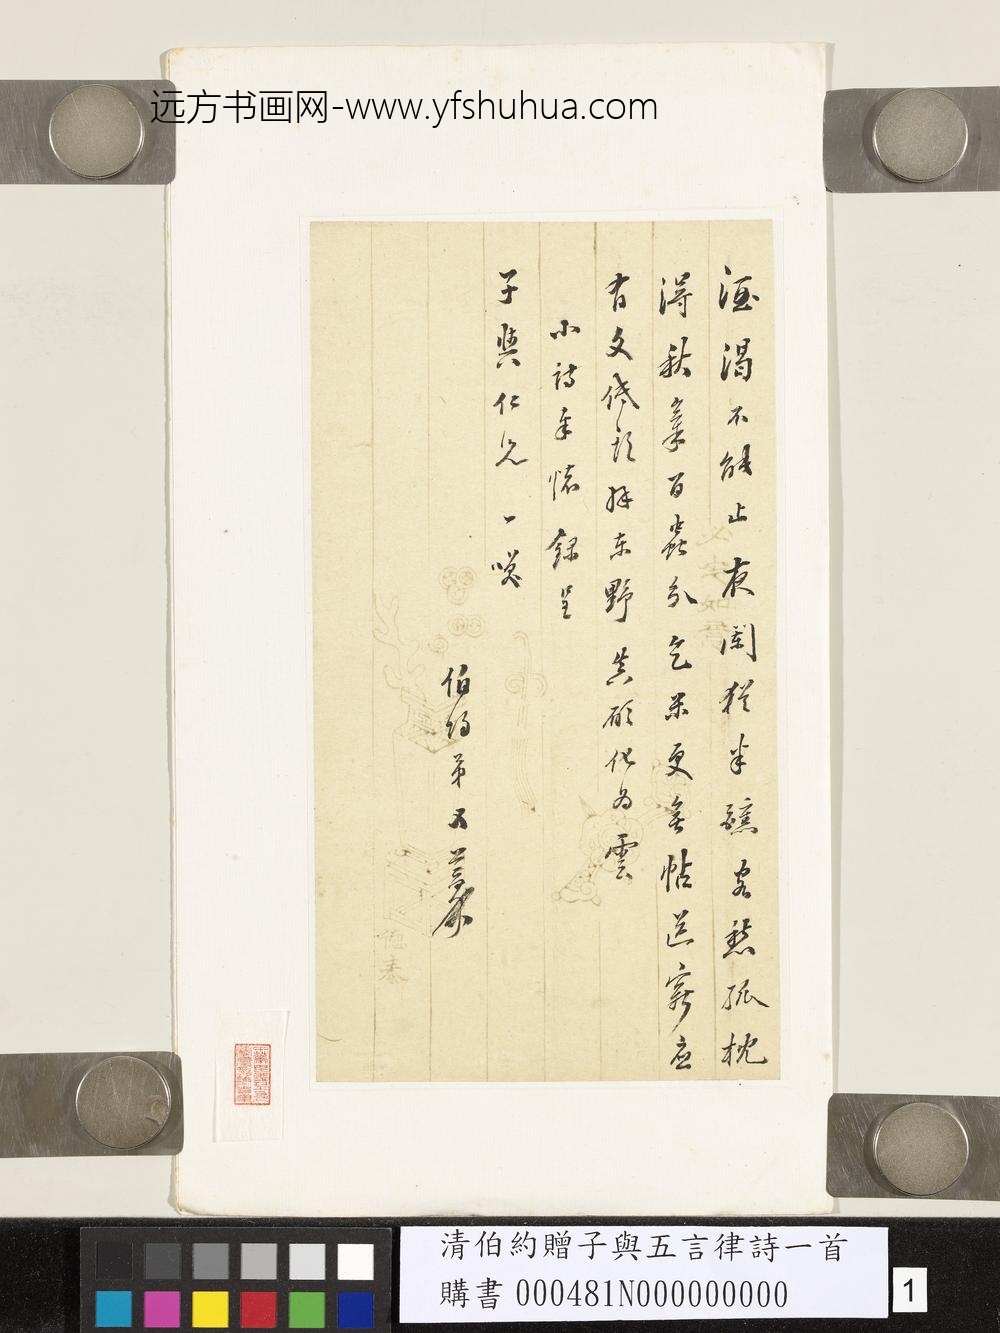 远方书画网-www.yfshuhua.com
酒渴不能止夜闌猶半醺客愁孤枕
得秋氣百蟲分乞米更無帖送窮應
有文低頭拜東野眞願化為雲
小詩奉懷錄呈
子與仁兄一笑
伯約弟
清伯約贈子與五言律詩一首
購書 000481N000000000
1